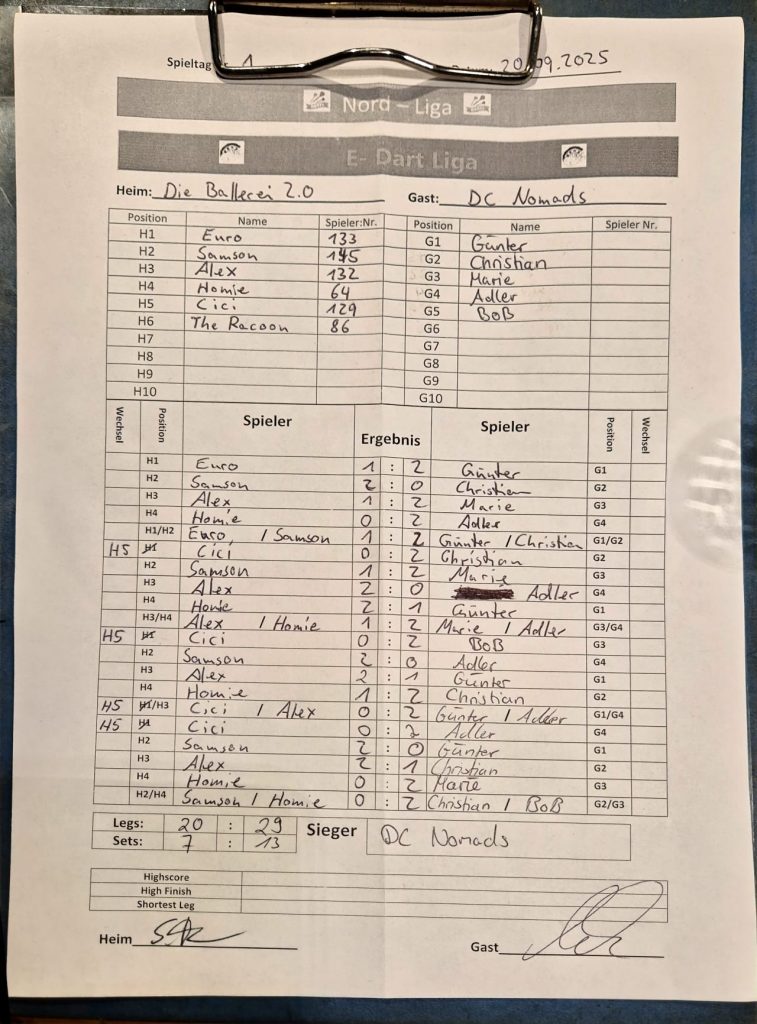 Spieltag 1 20.09.2025
Nord – Liga
E- Dart Liga
Heim: Die Ballerei 2.0 Gast: DC Nomads
Position Name Spieler:Nr. Position Name Spieler Nr.
H1 Euro 133 G1 Günter
H2 Samson 145 G2 Christian
H3 Alex 132 G3 Marie
H4 Homie 64 G4 Adler
H5 Cici 129 G5 BoB
H6 The Racoon 86 G6
H7 G7
H8 G8
H9 G9
H10 G10
Wechsel Position Spieler Ergebnis Spieler Position Wechsel
H1 Euro 1 : 2 Günter G1
H2 Samson 2 : 0 Christian G2
H3 Alex 1 : 2 Marie G3
H4 Homie 0 : 2 Adler G4
H1/H2 Euro, / Samson 1 : 2 Günter / Christian G1/G2
H5 H1 Cici 0 : 2 Christian G2
H2 Samson 1 : 2 Marie G3
H3 Alex 2 : 0 Adler G4
H4 Homie 2 : 1 Günter G1
H3/H4 Alex / Homie 1 : 2 Marie / Adler G3/G4
H5 H1 Cici 0 : 2 BoB G3
H2 Samson 2 : 0 Adler G4
H3 Alex 2 : 1 Günter G1
H4 Homie 1 : 2 Christian G2
H5 H1/H3 Cici / Alex 0 : 2 Günter / Adler G1/G4
H5 H1 Cici 0 : 2 Adler G4
H2 Samson 2 : 0 Günter G1
H3 Alex 2 : 1 Christian G2
H4 Homie 0 : 2 Marie G3
H2/H4 Samson / Homie 0 : 2 Christian / BoB G2/G3
Legs: 20 : 29 Sieger DC Nomads
Sets: 7 : 13
Highscore
High Finish
Shortest Leg
Heim Gast